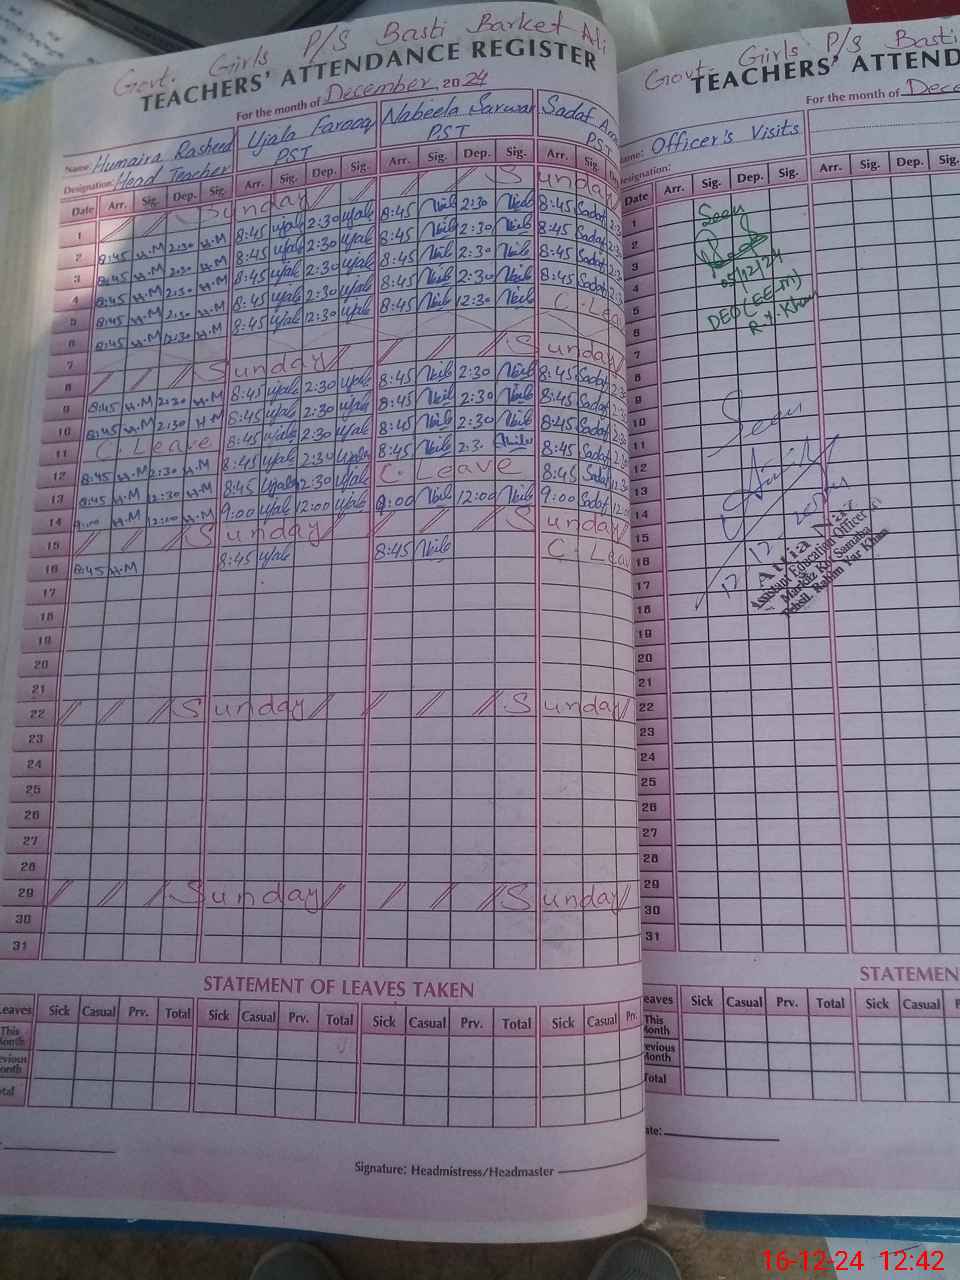 Govt. Girls P/S Basti Barket Ali
TEACHERS' ATTENDANCE REGISTER
For the month of December, 2024
Name: Humaira Rasheed Ujala Farooq Nabeela Sarwar Sadaf
Designation: Head Teacher PST PST PST
Date Arr. Sig. Dep. Sig. Arr. Sig. Dep. Sig. Arr. Sig. Dep. Sig. Arr. Sig.
1 Sunday Sunday
2 8:45 H.M 2:30 H.M 8:45 Ujala 2:30 Ujala 8:45 2:30 8:45 Sadaf
3 8:45 H.M 2:30 H.M 8:45 Ujala 2:30 Ujala 8:45 2:30 8:45 Sadaf
4 8:45 H.M 2:30 H.M 8:45 Ujala 2:30 Ujala 8:45 2:30 8:45 Sadaf
5 8:45 H.M 2:30 H.M 8:45 Ujala 2:30 Ujala 8:45 2:30 8:45 Sadaf
6 8:45 H.M 12:30 H.M 8:45 Ujala 12:30 Ujala 8:45 12:30 C. Leav
7
8 Sunday Sunday
9 8:45 H.M 2:30 H.M 8:45 Ujala 2:30 Ujala 8:45 2:30 8:45 Sadaf
10 8:45 H.M 2:30 H.M 8:45 Ujala 2:30 Ujala 8:45 2:30 8:45 Sadaf
11 C. Leave 8:45 Ujala 2:30 Ujala 8:45 2:30 8:45 Sadaf
12 8:45 H.M 2:30 H.M 8:45 Ujala 2:30 Ujala 8:45 2:3 8:45 Sadaf
13 8:45 H.M 12:30 H.M 8:45 Ujala 2:30 Ujala C. Leave 8:45 Sadaf
14 9:00 H.M 12:00 H.M 9:00 Ujala 12:00 Ujala 9:00 12:00 9:00 Sadaf
15 Sunday Sunday
16 8:45 H.M 8:45 Ujala 8:45 C. Leav
17
18
19
20
21
22 Sunday Sunday
23
24
25
26
27
28
29 Sunday Sunday
30
31
STATEMENT OF LEAVES TAKEN
Leaves Sick Casual Prv. Total Sick Casual Prv. Total Sick Casual Prv. Total Sick Casual Prv.
This Month
Previous Month
Total
Signature: Headmistress/Headmaster
Govt. Girls P/S Basti
TEACHERS' ATTEND
For the month of Dece
Name: Officer's Visits
Designation:
Date Arr. Sig. Dep. Sig. Arr. Sig. Dep. Sig.
1
2
3
4
5
6
7
8
9
10
11
12
13
14
15
16
17
18
19
20
21
22
23
24
25
26
27
28
29
30
31
Seen
05/12/24
DEO (EE-M)
R.Y. Khan
Seen
Attia Niaz
Assistant Education Officer
Markaz Kot Samaba
Tehsil Rahim Yar Khan
STATEMEN
eaves Sick Casual Prv. Total Sick Casual
This Month
revious Month
Total
ate:
16-12-24 12:42